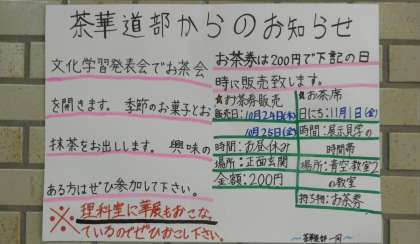 茶華道部からのお知らせ
文化学習発表会でお茶会
を開きます。季節のお菓子とお
抹茶をお出しします。興味の
ある方はぜひ参加して下さい。
※理科室に華展もおこな
っているのでぜひおこし下さい。
お茶券は200円で下記の日
時に販売致します。
☆お茶券販売
販売日:10月24日(木)
10月25日(金)
時間:お昼休み
場所:正面玄関
金額:200円
☆お茶席
日にち:11月1日(金)
時間:展示見学の
時間帯
場所:青空教室2
の教室
持ち物:お茶券
茶華道部一同